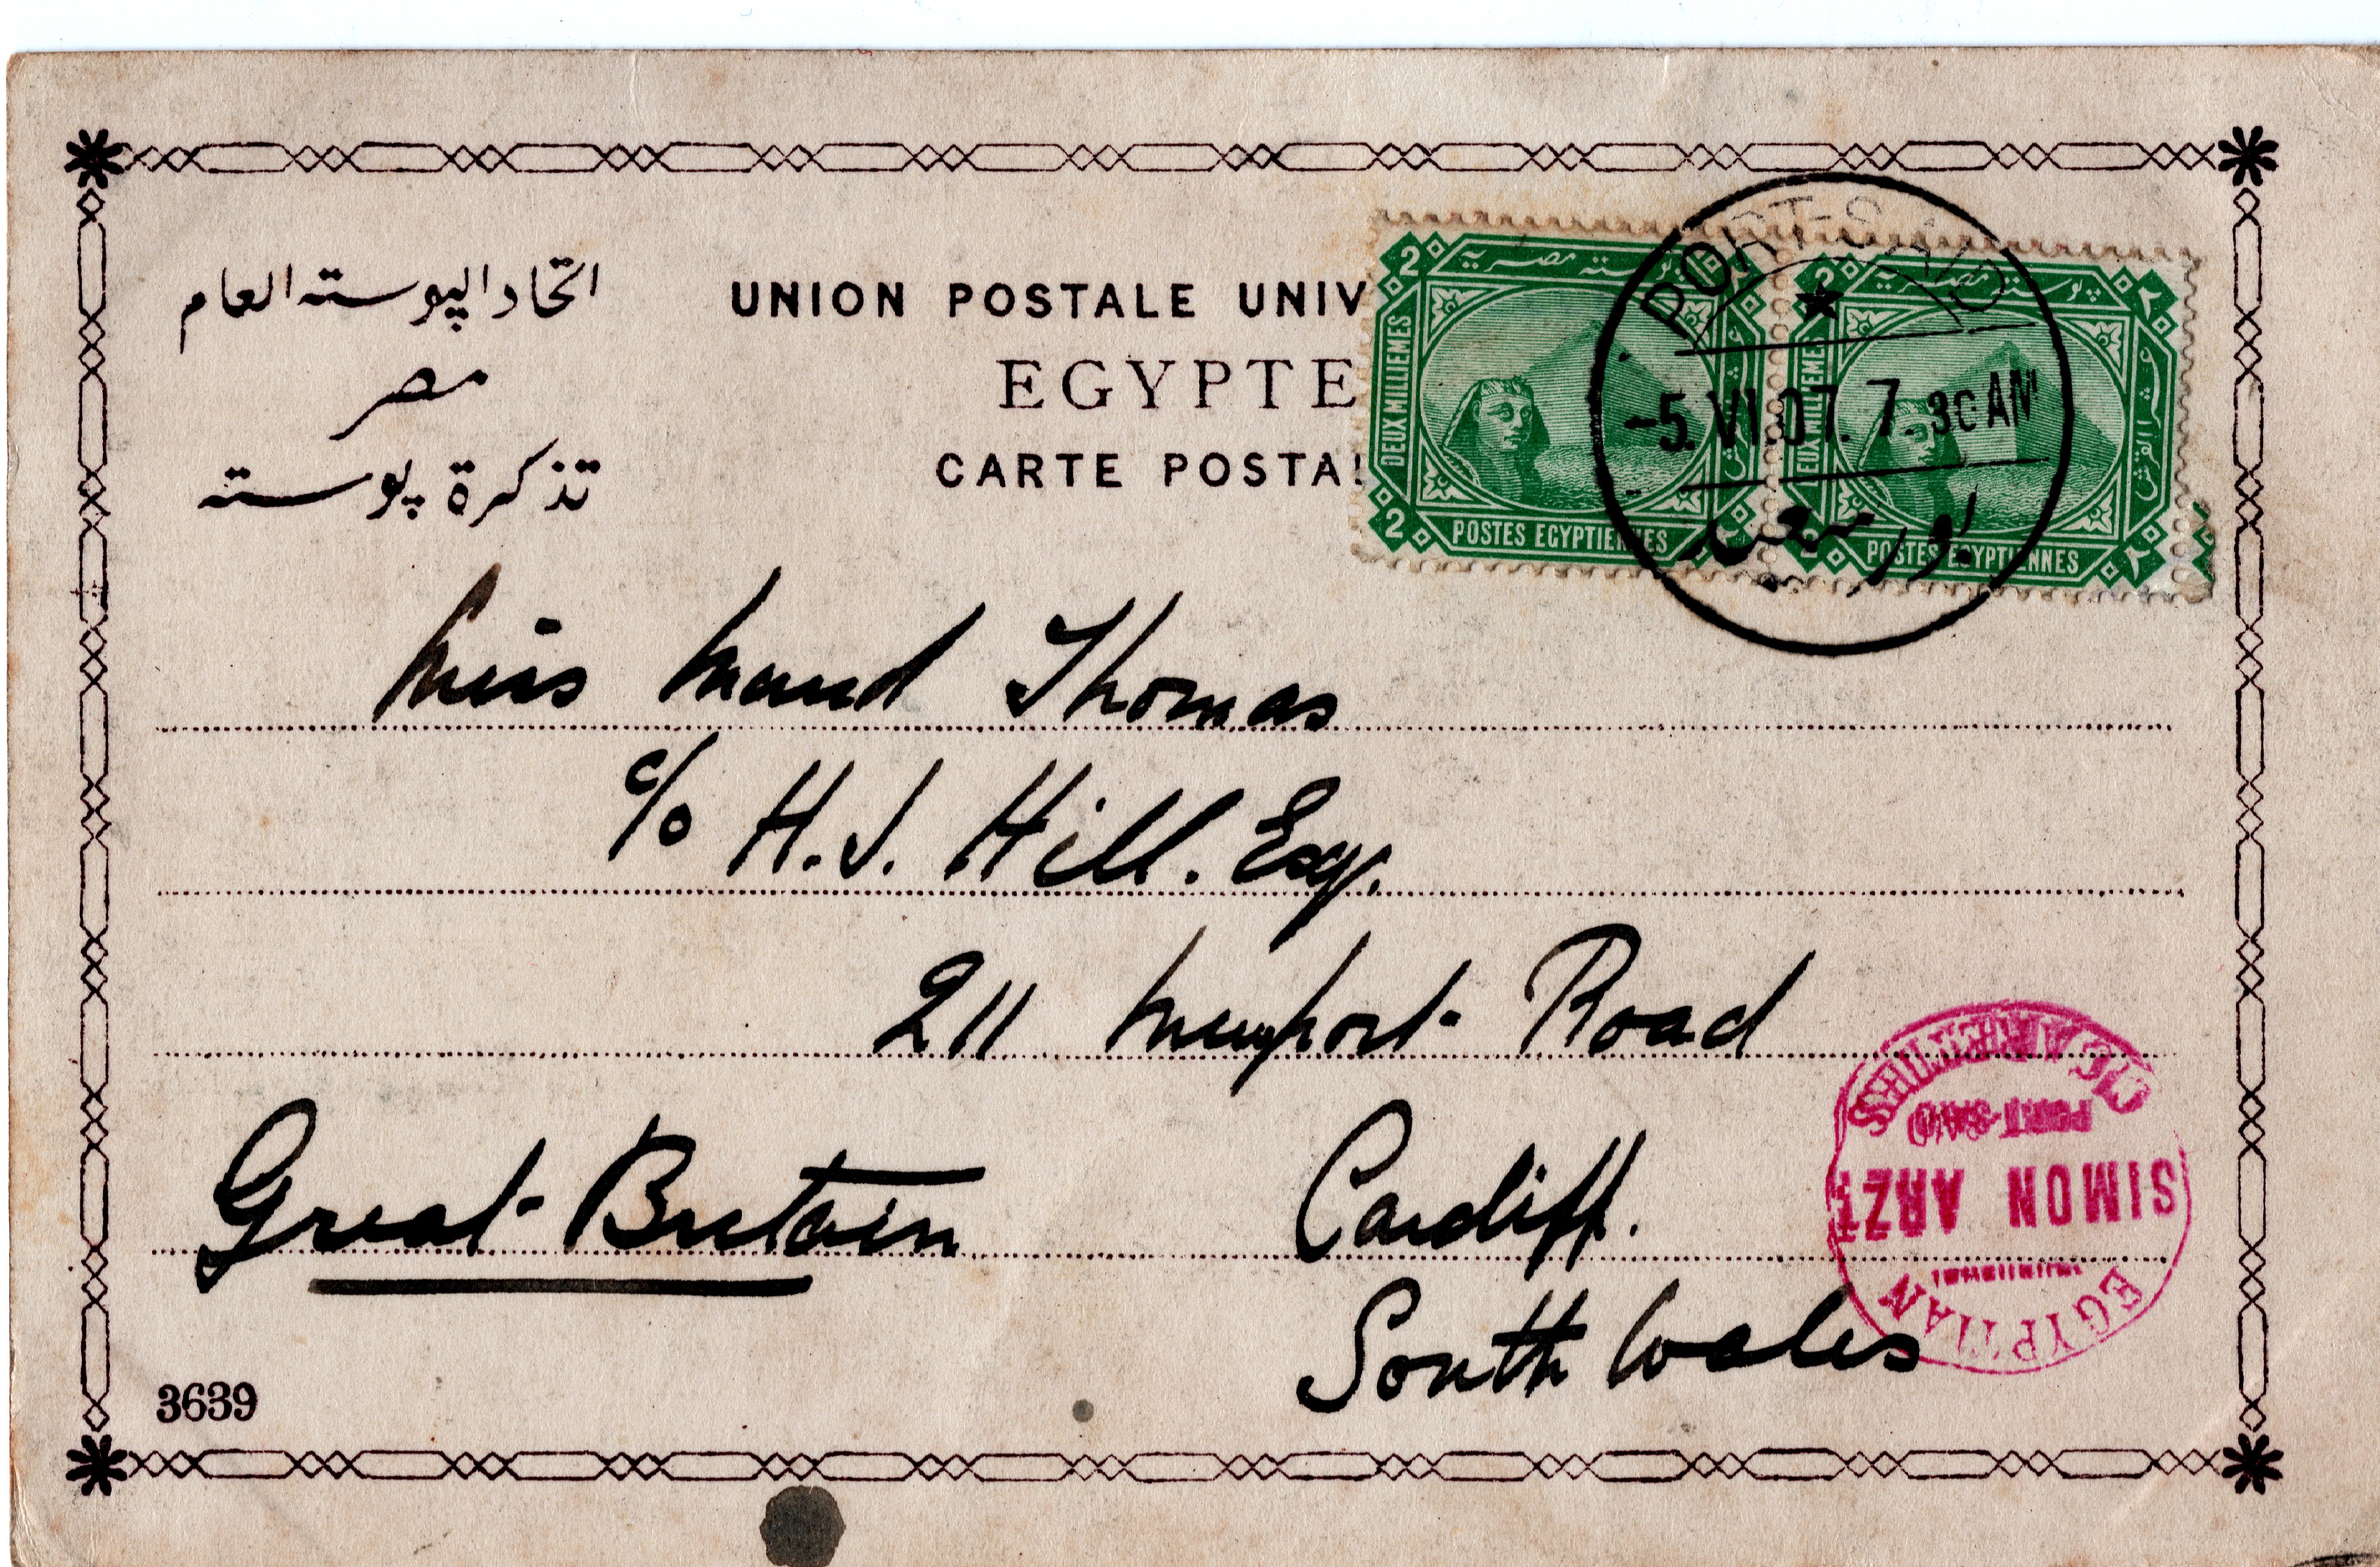 اتحاد البوسته العام
مصر
تذكرة پوسته
UNION POSTALE UNIV
EGYPTE
CARTE POSTA
2 پوسته مصريه
DEUX MILLIEMES
2 POSTES EGYPTIENNES
2 پوسته مصريه ٢
DEUX MILLIEMES
POSTES EGYPTIENNES ٢
PORT-SAID
-5.VI.07.7.30AM
بور سعيد
Miss Maud Thomas
c/o H.J. Hill. Esq.
211 Newport Road
Great Britain
Cardiff.
South Wales
EGYPTIAN
SIMON ARZT
PORT-SAID
CIGARETTES
3639